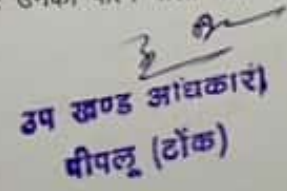 उनका
उप खण्ड अधिकारी
पीपलू (टोंक)